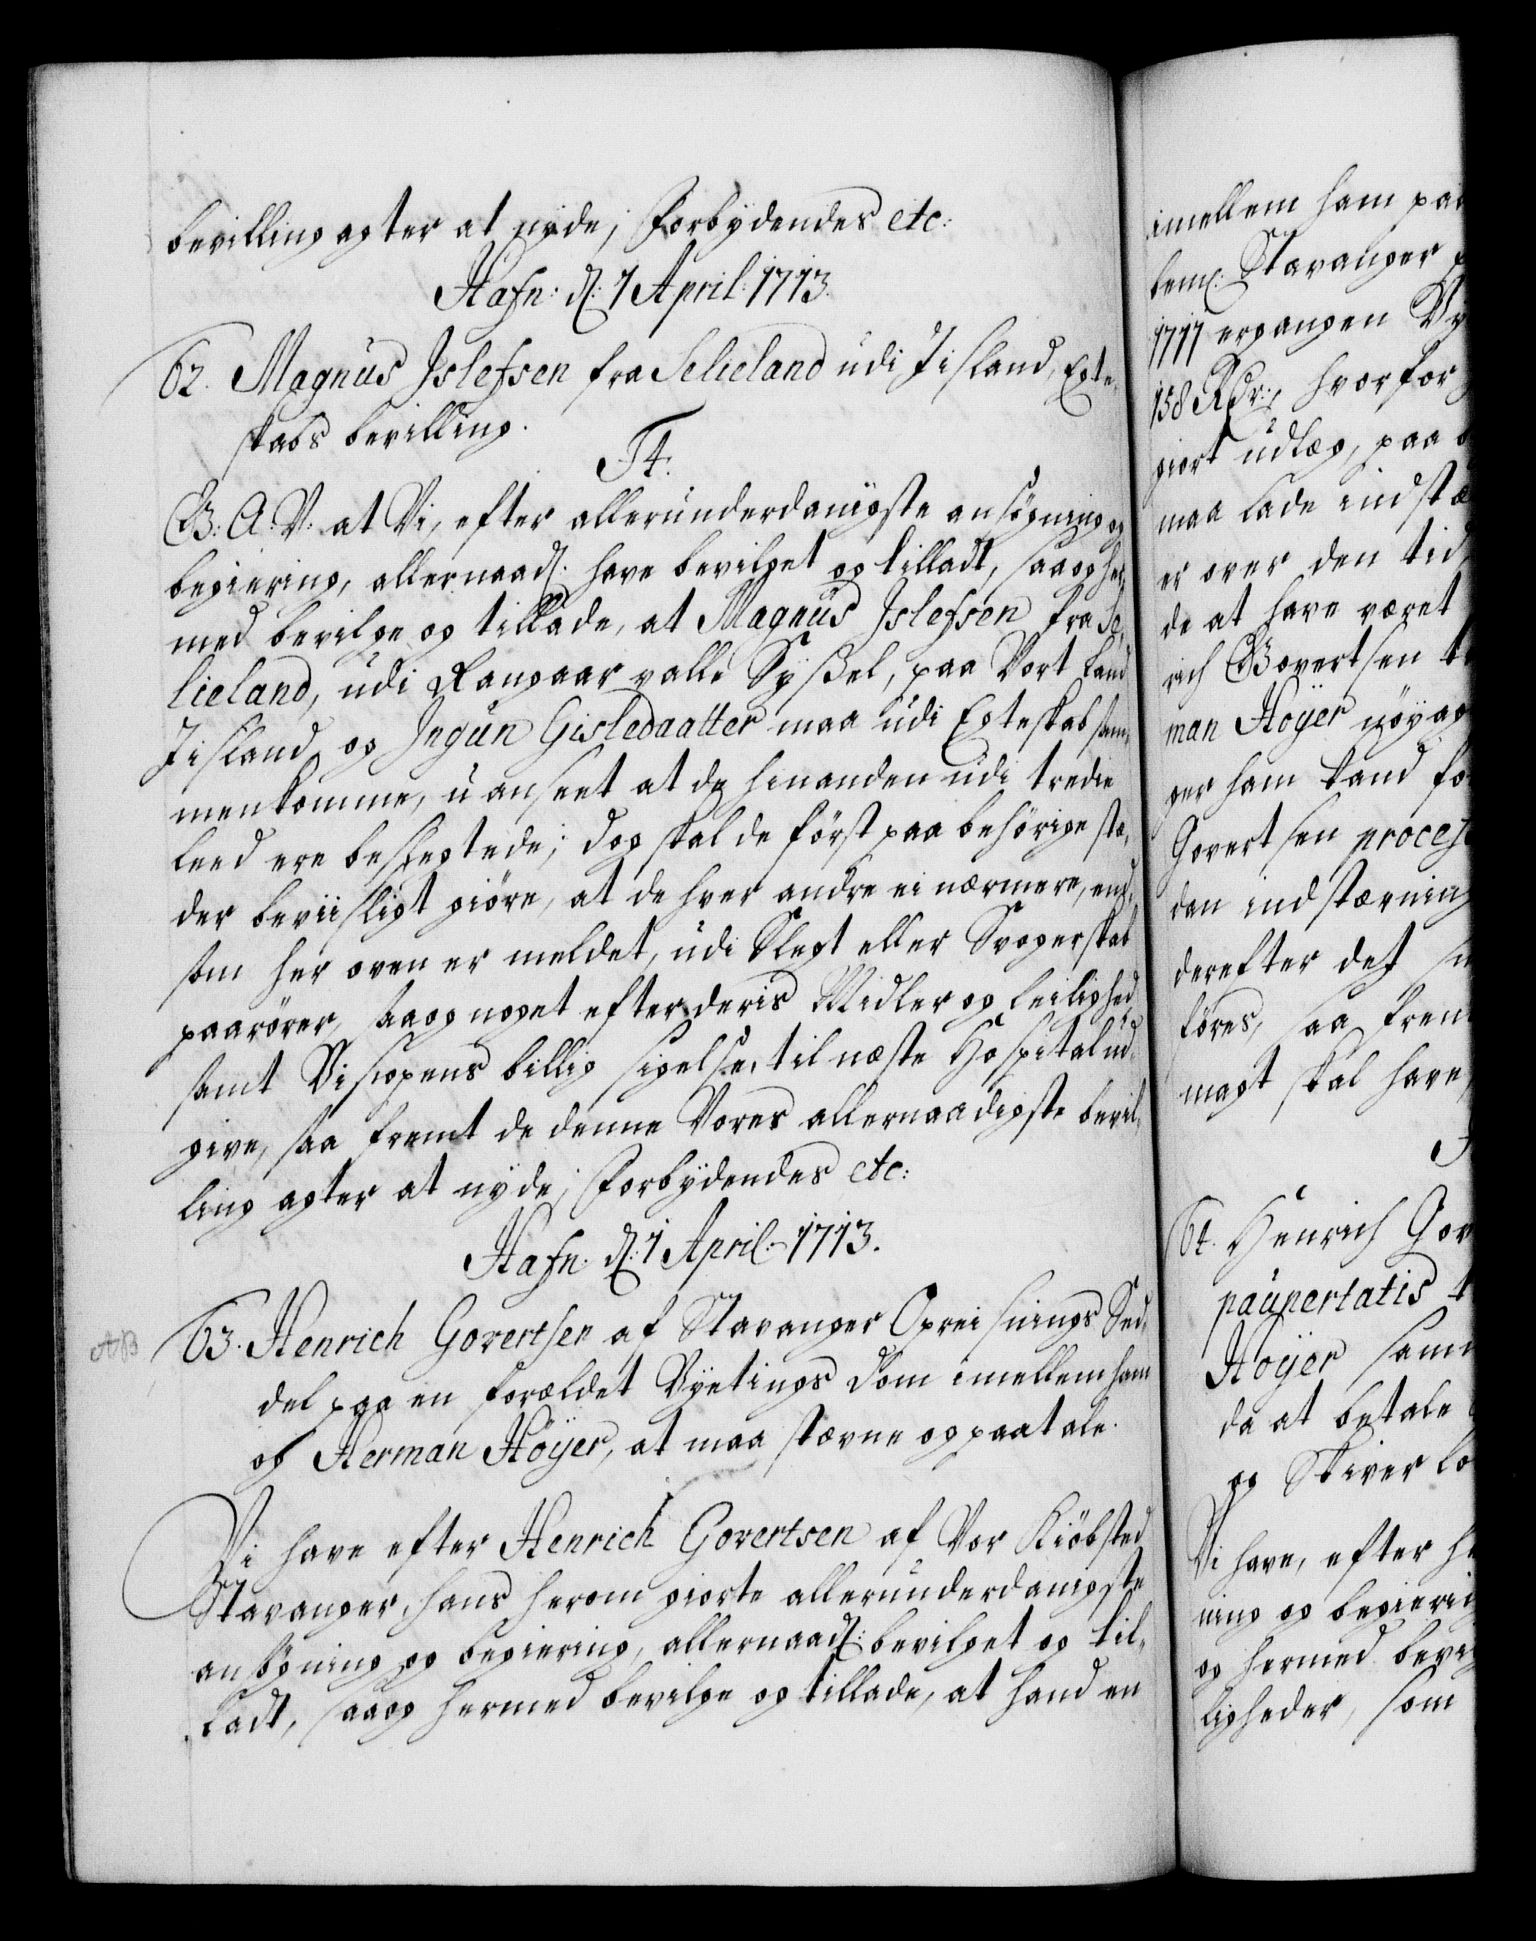 bevilling agter at nyde, Forbydendes etc:
Hafn: d: 1 April: 1713.
62. Magnus Islefsen fra Selieland udi Iisland, Egte-
skabs bevilling.
F4.
G: A: V: at Vi, efter allerunderdanigste ansøgning og
begiering, allernaad: have bevilget og tilladt, saa og her-
med bevilge og tillade, at Magnus Islefsen fra Se-
lieland, udi Rangaar valle Syszel, paa Vort Land
Iisland, og Ingun Gisledaatter maa udi Egteskab sam-
menkomme, uanseet at de hinanden udi tredie
Leed ere beslegtede; dog skal de først paa behørige stæ-
der beviisligt giøre, at de hver andre ei nærmere, end
som her oven er meldet, udi Slegt eller Svogerskab
paarører, saa og noget efter deris Midler og Leilighed
samt Biscopens billig sigelse, til næste Hospital ud-
give, saa fremt de denne Vores allernaadigste bevil-
ling agter at nyde, Forbydendes etc:
Hafn: d: 1 April: 1713.
63. Henrich Govertsen af Stavanger Opreisnings Sed-
del paa en forældet Byetings dom imellem ham
og Herman Höyer, at maa stævne og paatale.
Vi have efter Henrich Govertsen af Vor Kiöbsted
Stavanger, hans herom giorte allerunderdanigste
ansøgning og begiering, allernaad: bevilget og til-
ladt, saa og hermed bevilge og tillade, at hand en
imellem ham paa
bem: Stavanger
1711 ergangen By
158 Rdr:, hvorfor
giort udlæg, paa
maa lade indstæ
er over den tid
de at have været
rich Govertsen
man Höyer nøyag
ger ham kand fo
Govertsen proces
den indstævning
derefter det
føres, saa frem
magt skal have,
64. Henrich Gov
paupertatis
Höyer sam
da at betale
og Skiver lo
Vi have, efter He
ning og begierin
og hermed bevi
ligheder, som